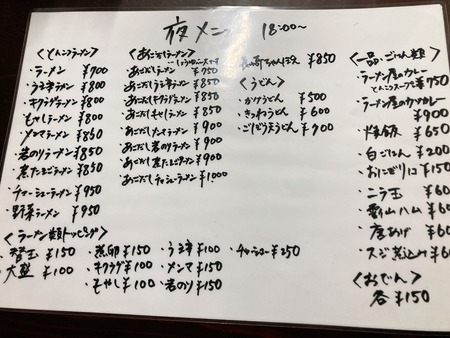 夜メニュー 18:00〜
<とんこつラーメン>
・ラーメン ¥700
・うま辛ラーメン ¥800
・キクラゲラーメン ¥800
・もやしラーメン ¥800
・メンマラーメン ¥850
・岩のりラーメン ¥850
・煮たまごラーメン ¥850
・チャーシューラーメン ¥950
・野菜ラーメン ¥950
<ラーメン類トッピング>
・替玉 ¥150
・大盛 ¥100
・煮卵 ¥150
・キクラゲ ¥100
・もやし ¥100
・うま辛 ¥100
・メンマ ¥150
・岩のり ¥150
・チャーシュー ¥250
<あごだしラーメン>
・あごだしラーメン ¥750
・あごだしうま辛ラーメン ¥850
・あごだしキクラゲラーメン ¥850
・あごだしもやしラーメン ¥850
・あごだしメンマラーメン ¥900
・あごだし岩のりラーメン ¥900
・あごだし煮たまごラーメン ¥900
・あごだしチャーシューラーメン ¥1000
ちゃんぽん ¥850
<うどん>
・かけうどん ¥500
・きつねうどん ¥600
・ごぼう天うどん ¥700
<一品・ごはん類>
・ラーメン屋のカレー
とんこつスープ ¥750
・ラーメン屋のカツカレー
¥900
・焼飯 ¥650
・白ごはん ¥200
・おにぎり
・ニラ玉
・ハム
・唐あげ
・スジ煮込み
<おでん>
各 ¥150